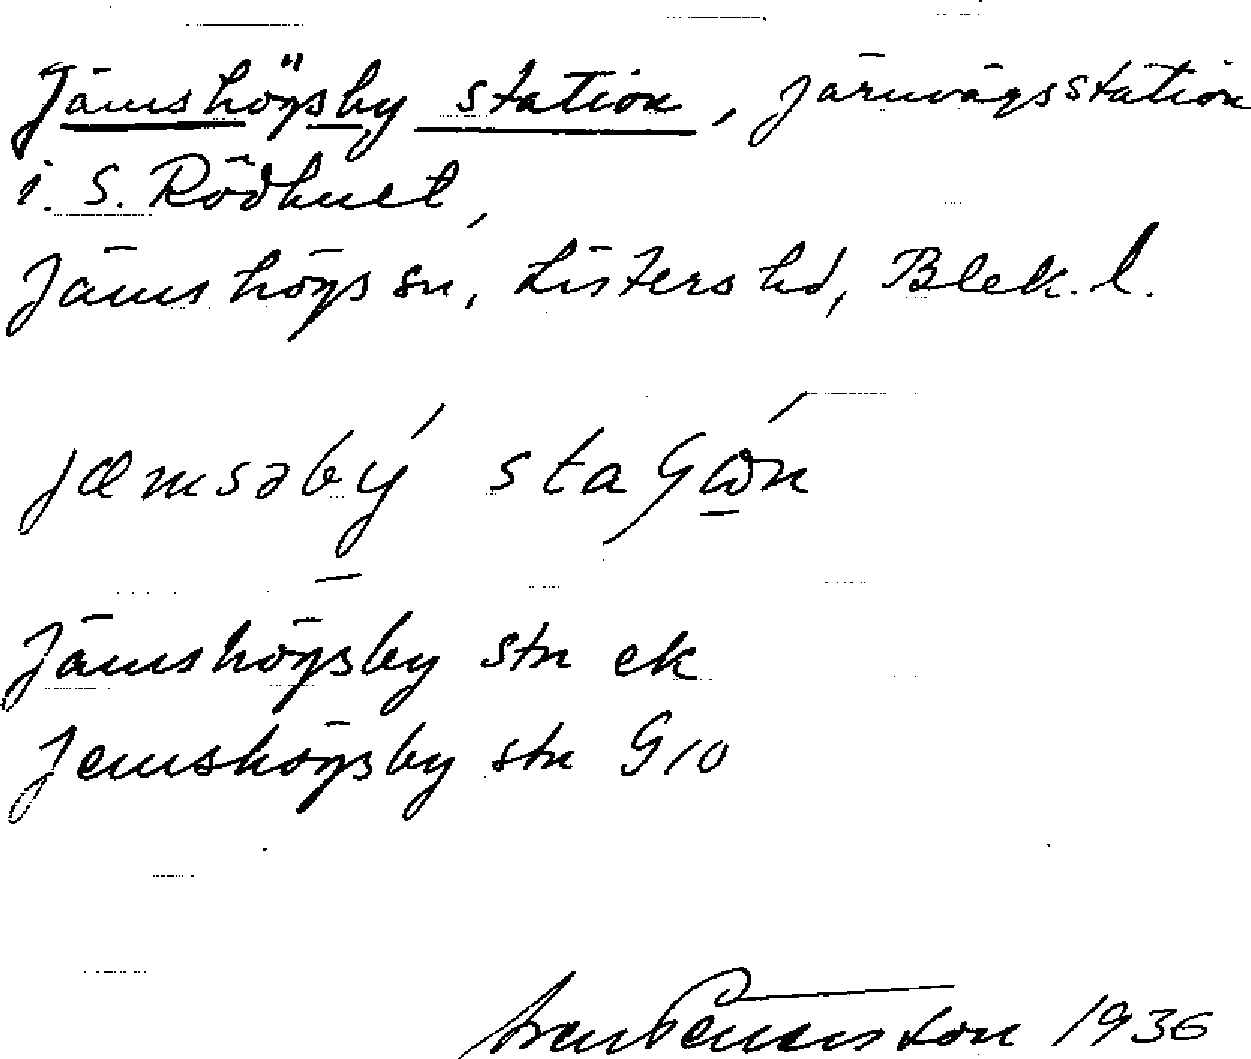 Jämshögsby station, järnvägsstation
i S. Rödhult,
Jämshögs sn, Listers hd, Blek. l.
jæmsəbý
Jämshögsby stn ek
Jemshögsby stn G10
1936